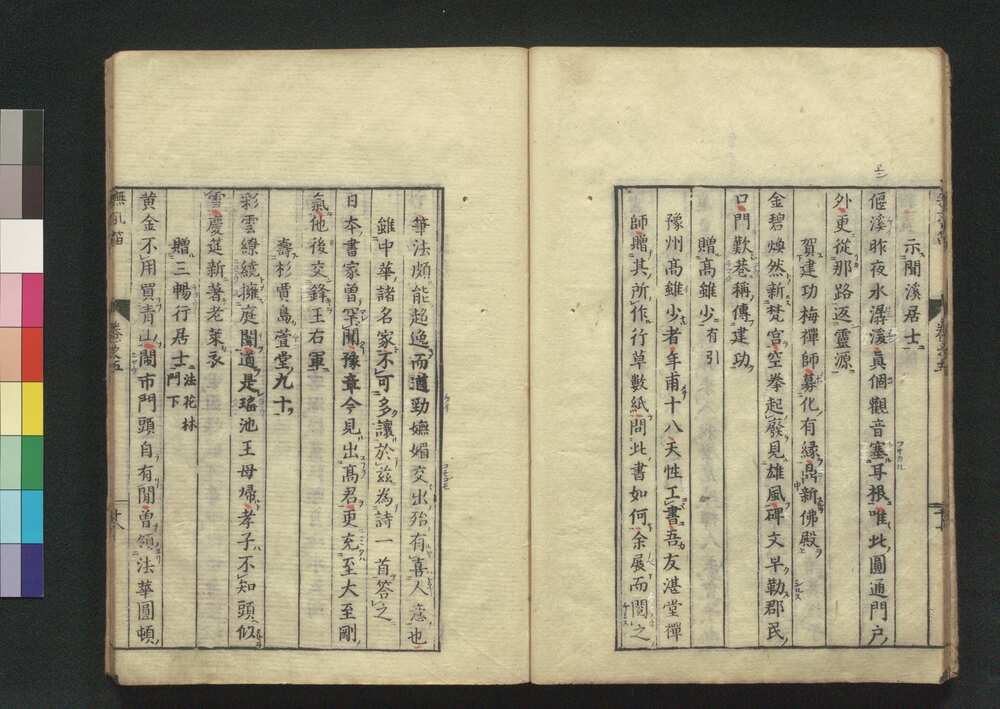 示聞溪居士
偃溪昨夜水潺湲真個觀音塞耳根唯此圓通門戸
外更從那路返靈源
賀建功梅禪師募化有縁鼎新佛殿
金碧煥然新梵宮空拳起廢見雄風碑文早勒郡民
口門歎巷稱傳建功
贈髙維少有引
豫州髙維少者年甫十八天性工書吾友湛堂禪
師贈其所作行草數紙問此書如何余展而閲之
筆法頗能超逸而遒勁嫵媚交出殆有喜人意也
雖中華諸名家不可多讓於茲為詩一首答之
日本書家曽罕聞豫章今見出髙君更充至大至剛
氣他後交鋒王右軍
壽杉賈島萱堂九十
彩雲繚繞擁庭闈道是瑤池王母帰孝子不知頭似
雪慶筵新著老萊衣
贈三暢行居士法花林門下
黄金不用買青山閙市門頭自有閒曽領法華圓頓
無孔笛
卷之五
廿八